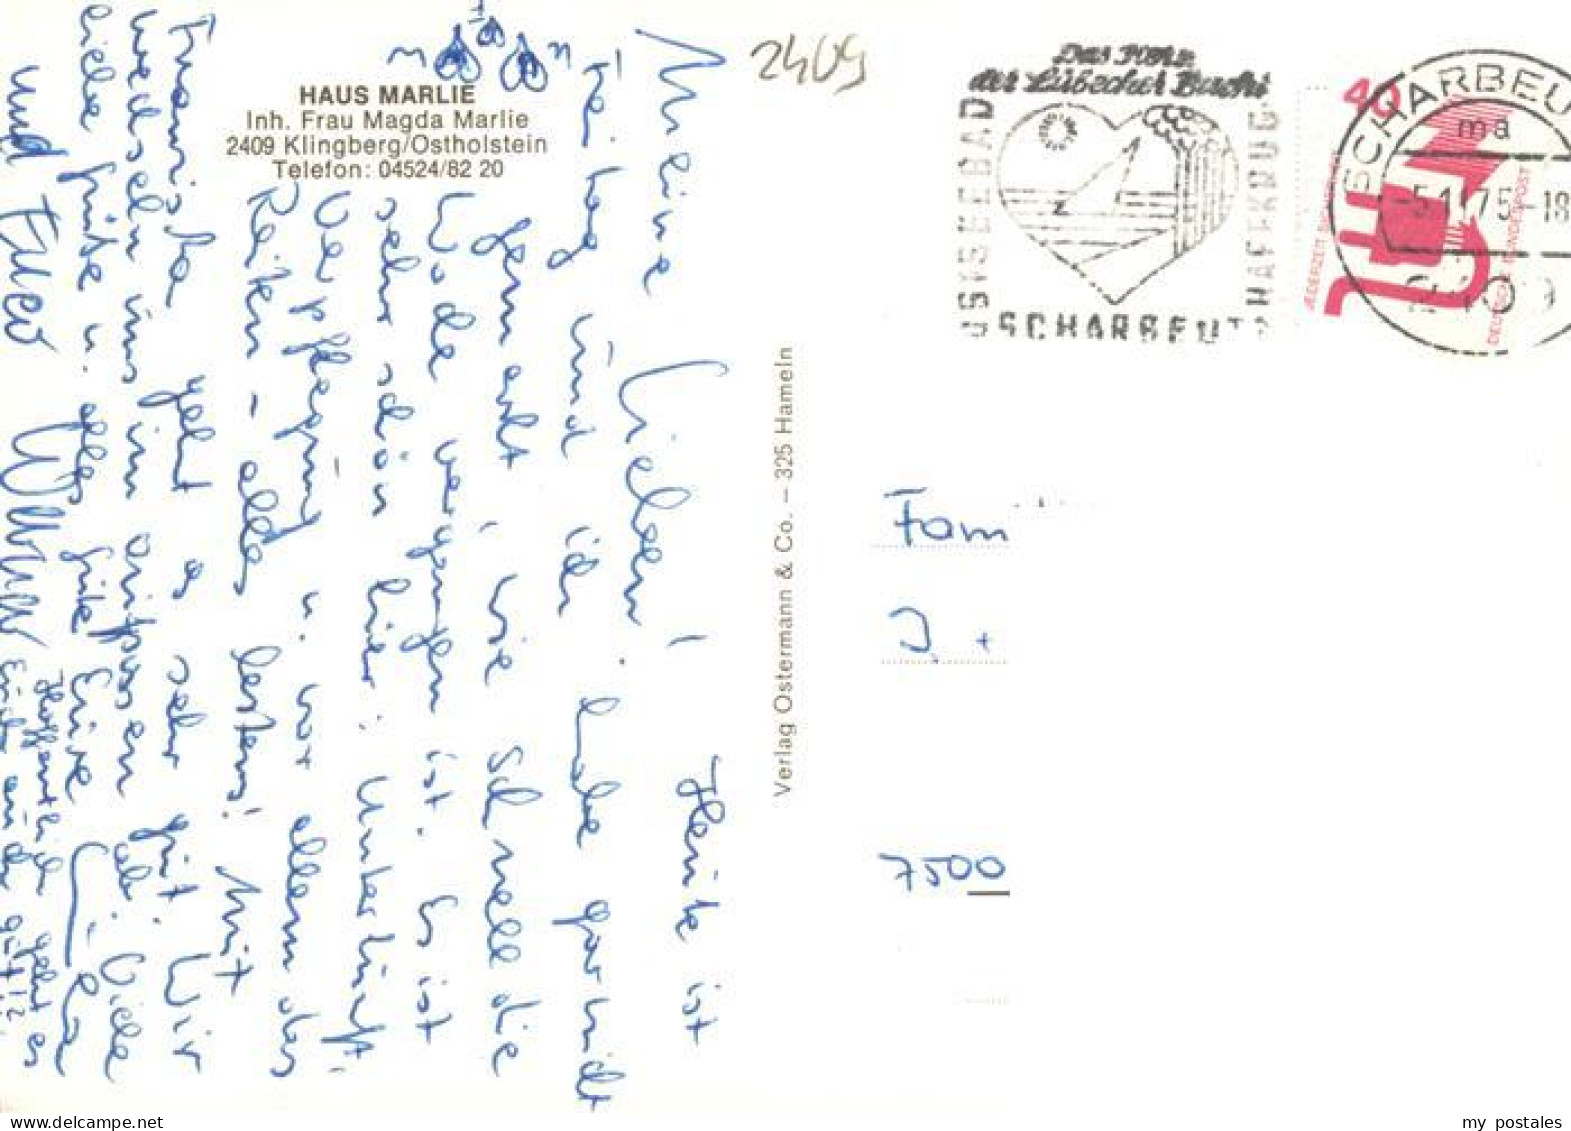 HAUS MARLIE
Inh. Frau Magda Marlie
2409 Klingberg/Ostholstein
Telefon: 04524/82 20
Meine Lieben! Heute ist
Freitag und ich habe gar nicht
gemerkt, wie schnell die
Woche vergangen ist. Es ist
sehr schön hier: Unterkunft,
Verpflegung u. vor allem das
Reiten – alles bestens! Mit
geht es sehr gut. Wir
wechseln uns im ab. Viele
viele Grüße u. alles Gute Eure
und Euer
Hoffentlich geht es
Euch auch gut!?
Verlag Ostermann & Co. – 325 Hameln
2409
Das Herz
der Lübecher Bucht
OSTSEEBAD
SCHARBEUTZ
HAFFKRUG
SCHARBEU
ma
-5.11.75-18
2409
40
JEDERZEIT SICHERHEIT
DEUTSCHE BUNDESPOST
Fam
J. +
7500
my postales